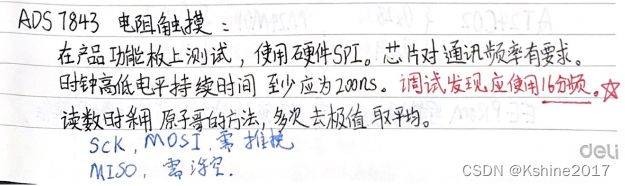 ADS7843 电阻触摸：
在产品功能板上测试，使用硬件SPI。芯片对通讯频率有要求。
时钟高低电平持续时间 至少应为200ns。调试发现应使用16分频。☆
读数时采用 原子哥的方法，多次去极值 取平均。
SCK，MOSI，需 推挽
MISO，需 浮空。
deli
CSDN @Kshine2017